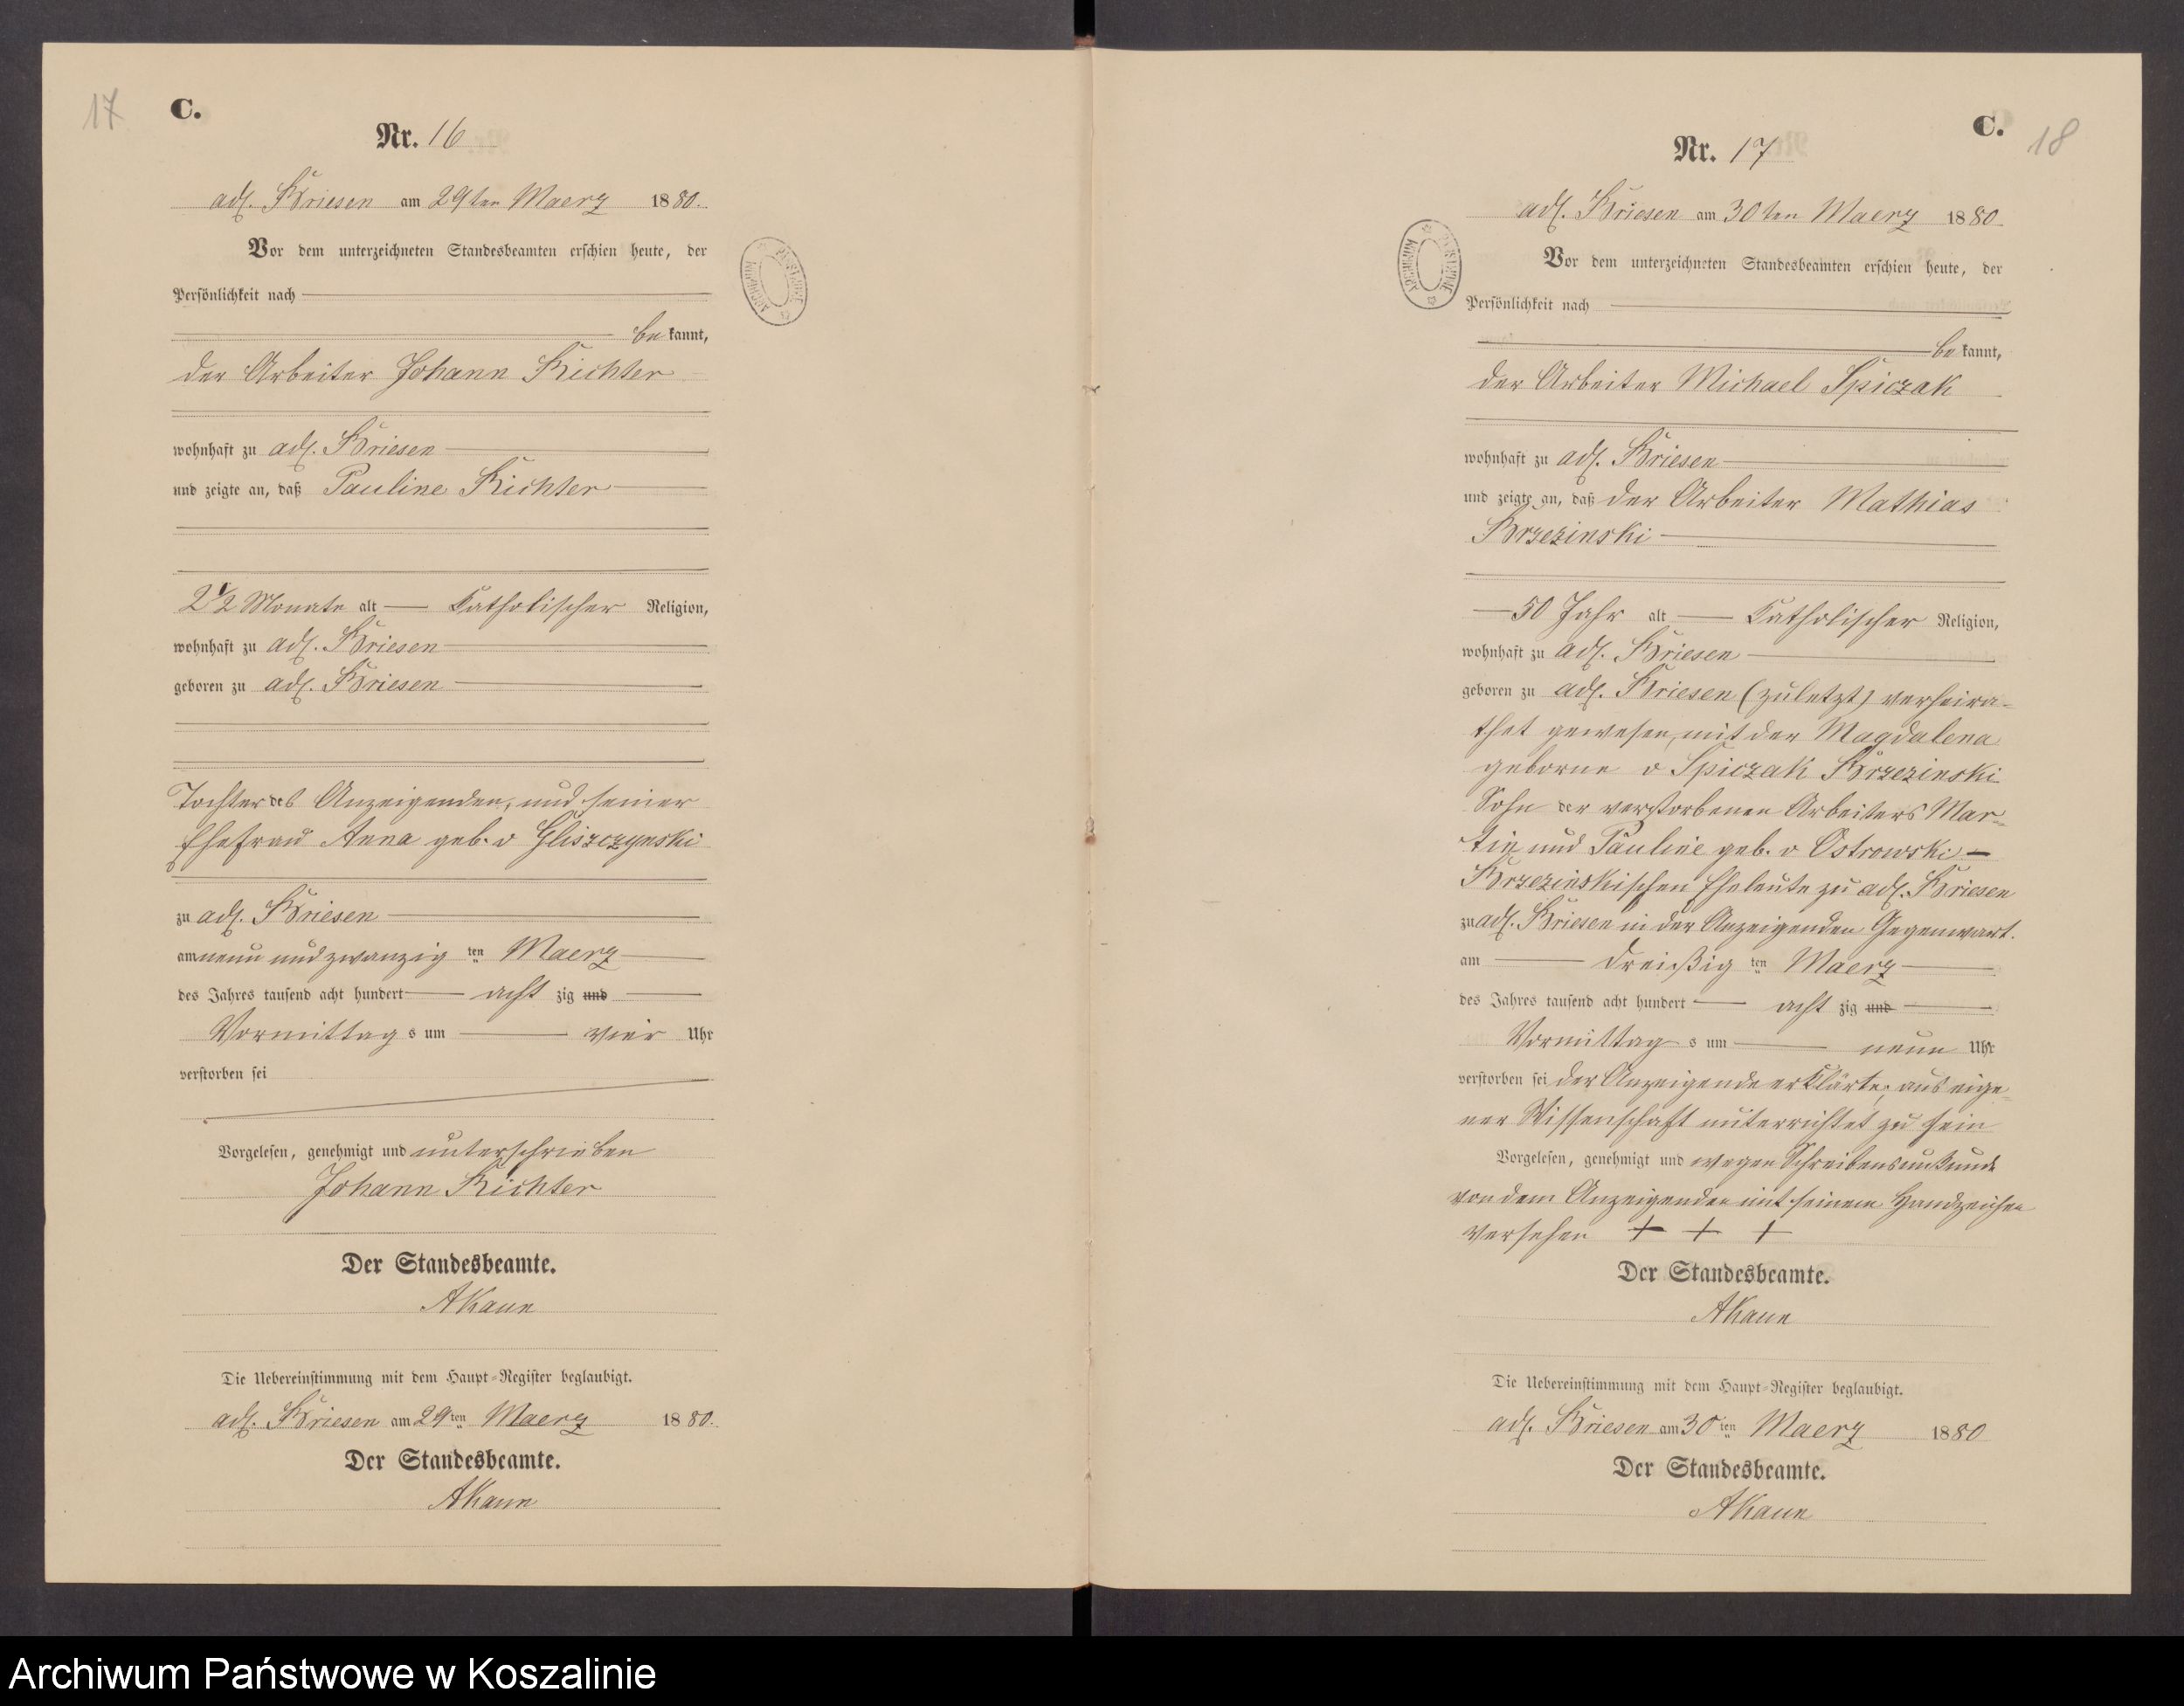 17
C.
Nr. 16
adl. Briesen am 29ten Maerz 1880.
Vor dem unterzeichneten Standesbeamten erschien heute, der
Persönlichkeit nach
bekannt,
der Arbeiter Johann Richter
wohnhaft zu adl. Briesen
und zeigte an, daß Pauline Richter
2 1/2 Monate alt Katholischer Religion,
wohnhaft zu adl. Briesen
geboren zu adl. Briesen
Tochter des Anzeigenden, und seiner
Ehefrau Anna geb. v Gliszczynski
zu adl. Briesen
am neun und zwanzigten Maerz
des Jahres tausend acht hundert acht zig und
Vormittags um vier Uhr
verstorben sei
Vorgelesen, genehmigt und unterschrieben
Johann Richter
Der Standesbeamte.
AKaun
Die Uebereinstimmung mit dem Haupt-Register beglaubigt.
adl. Briesen am 29ten Maerz 1880.
Der Standesbeamte.
AKaun
C.
18
Nr. 17
adl. Briesen am 30ten Maerz 1880
Vor dem unterzeichneten Standesbeamten erschien heute, der
Persönlichkeit nach
bekannt,
der Arbeiter Michael Spiczak
wohnhaft zu adl. Briesen
und zeigte an, daß der Arbeiter Mathias
Brzezinski
50 Jahr alt Katholischer Religion,
wohnhaft zu adl. Briesen
geboren zu adl. Briesen (zuletzt) verheira-
thet gewesen, mit der Magdalena
geborne v Spiczak Brzezinski
Sohn der verstorbenen Arbeiters Mar-
tin und Pauline geb. v Ostrowski -
Brzezinskischen Eheleute zu adl. Briesen
zu adl. Briesen in der Anzeigenden Gegenwart.
am dreißigten Maerz
des Jahres tausend acht hundert acht zig und
Vormittags um neun Uhr
verstorben sei der Anzeigende erklärte, aus eige-
ner Wissenschaft unterrichtet zu sein
Vorgelesen, genehmigt und wegen Schreibensunkunde
von dem Anzeigenden mit seinem Handzeichen
versehen + + +
Der Standesbeamte.
AKaun
Die Uebereinstimmung mit dem Haupt-Register beglaubigt.
adl. Briesen am 30ten Maerz 1880
Der Standesbeamte.
AKaun
Archiwum Państwowe w Koszalinie